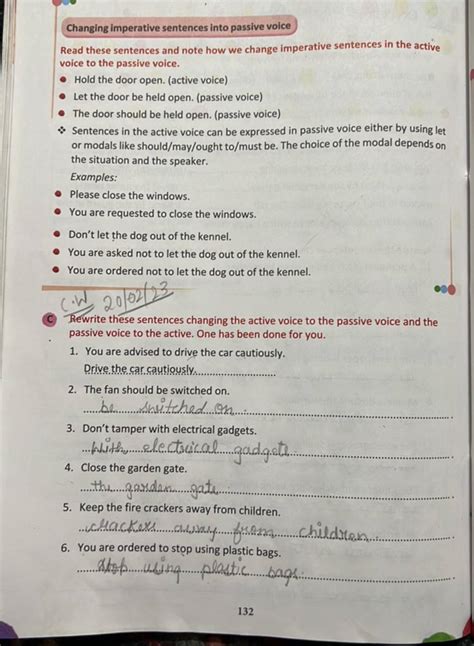 Changing imperative sentences into passive voice
Read these sentences and note how we change imperative sentences in the active
voice to the passive voice.
• Hold the door open. (active voice)
• Let the door be held open. (passive voice)
• The door should be held open. (passive voice)
❖ Sentences in the active voice can be expressed in passive voice either by using let
or modals like should/may/ought to/must be. The choice of the modal depends on
the situation and the speaker.
Examples:
• Please close the windows.
• You are requested to close the windows.
• Don't let the dog out of the kennel.
• You are asked not to let the dog out of the kennel.
• You are ordered not to let the dog out of the kennel.
C.W 20/02/23
C Rewrite these sentences changing the active voice to the passive voice and the
passive voice to the active. One has been done for you.
1. You are advised to drive the car cautiously.
Drive the car cautiously.
2. The fan should be switched on.
be switched on
3. Don't tamper with electrical gadgets.
With electrical gadgets
4. Close the garden gate.
the garden gate
5. Keep the fire crackers away from children.
crackers away from children
6. You are ordered to stop using plastic bags.
stop using plastic bags
132